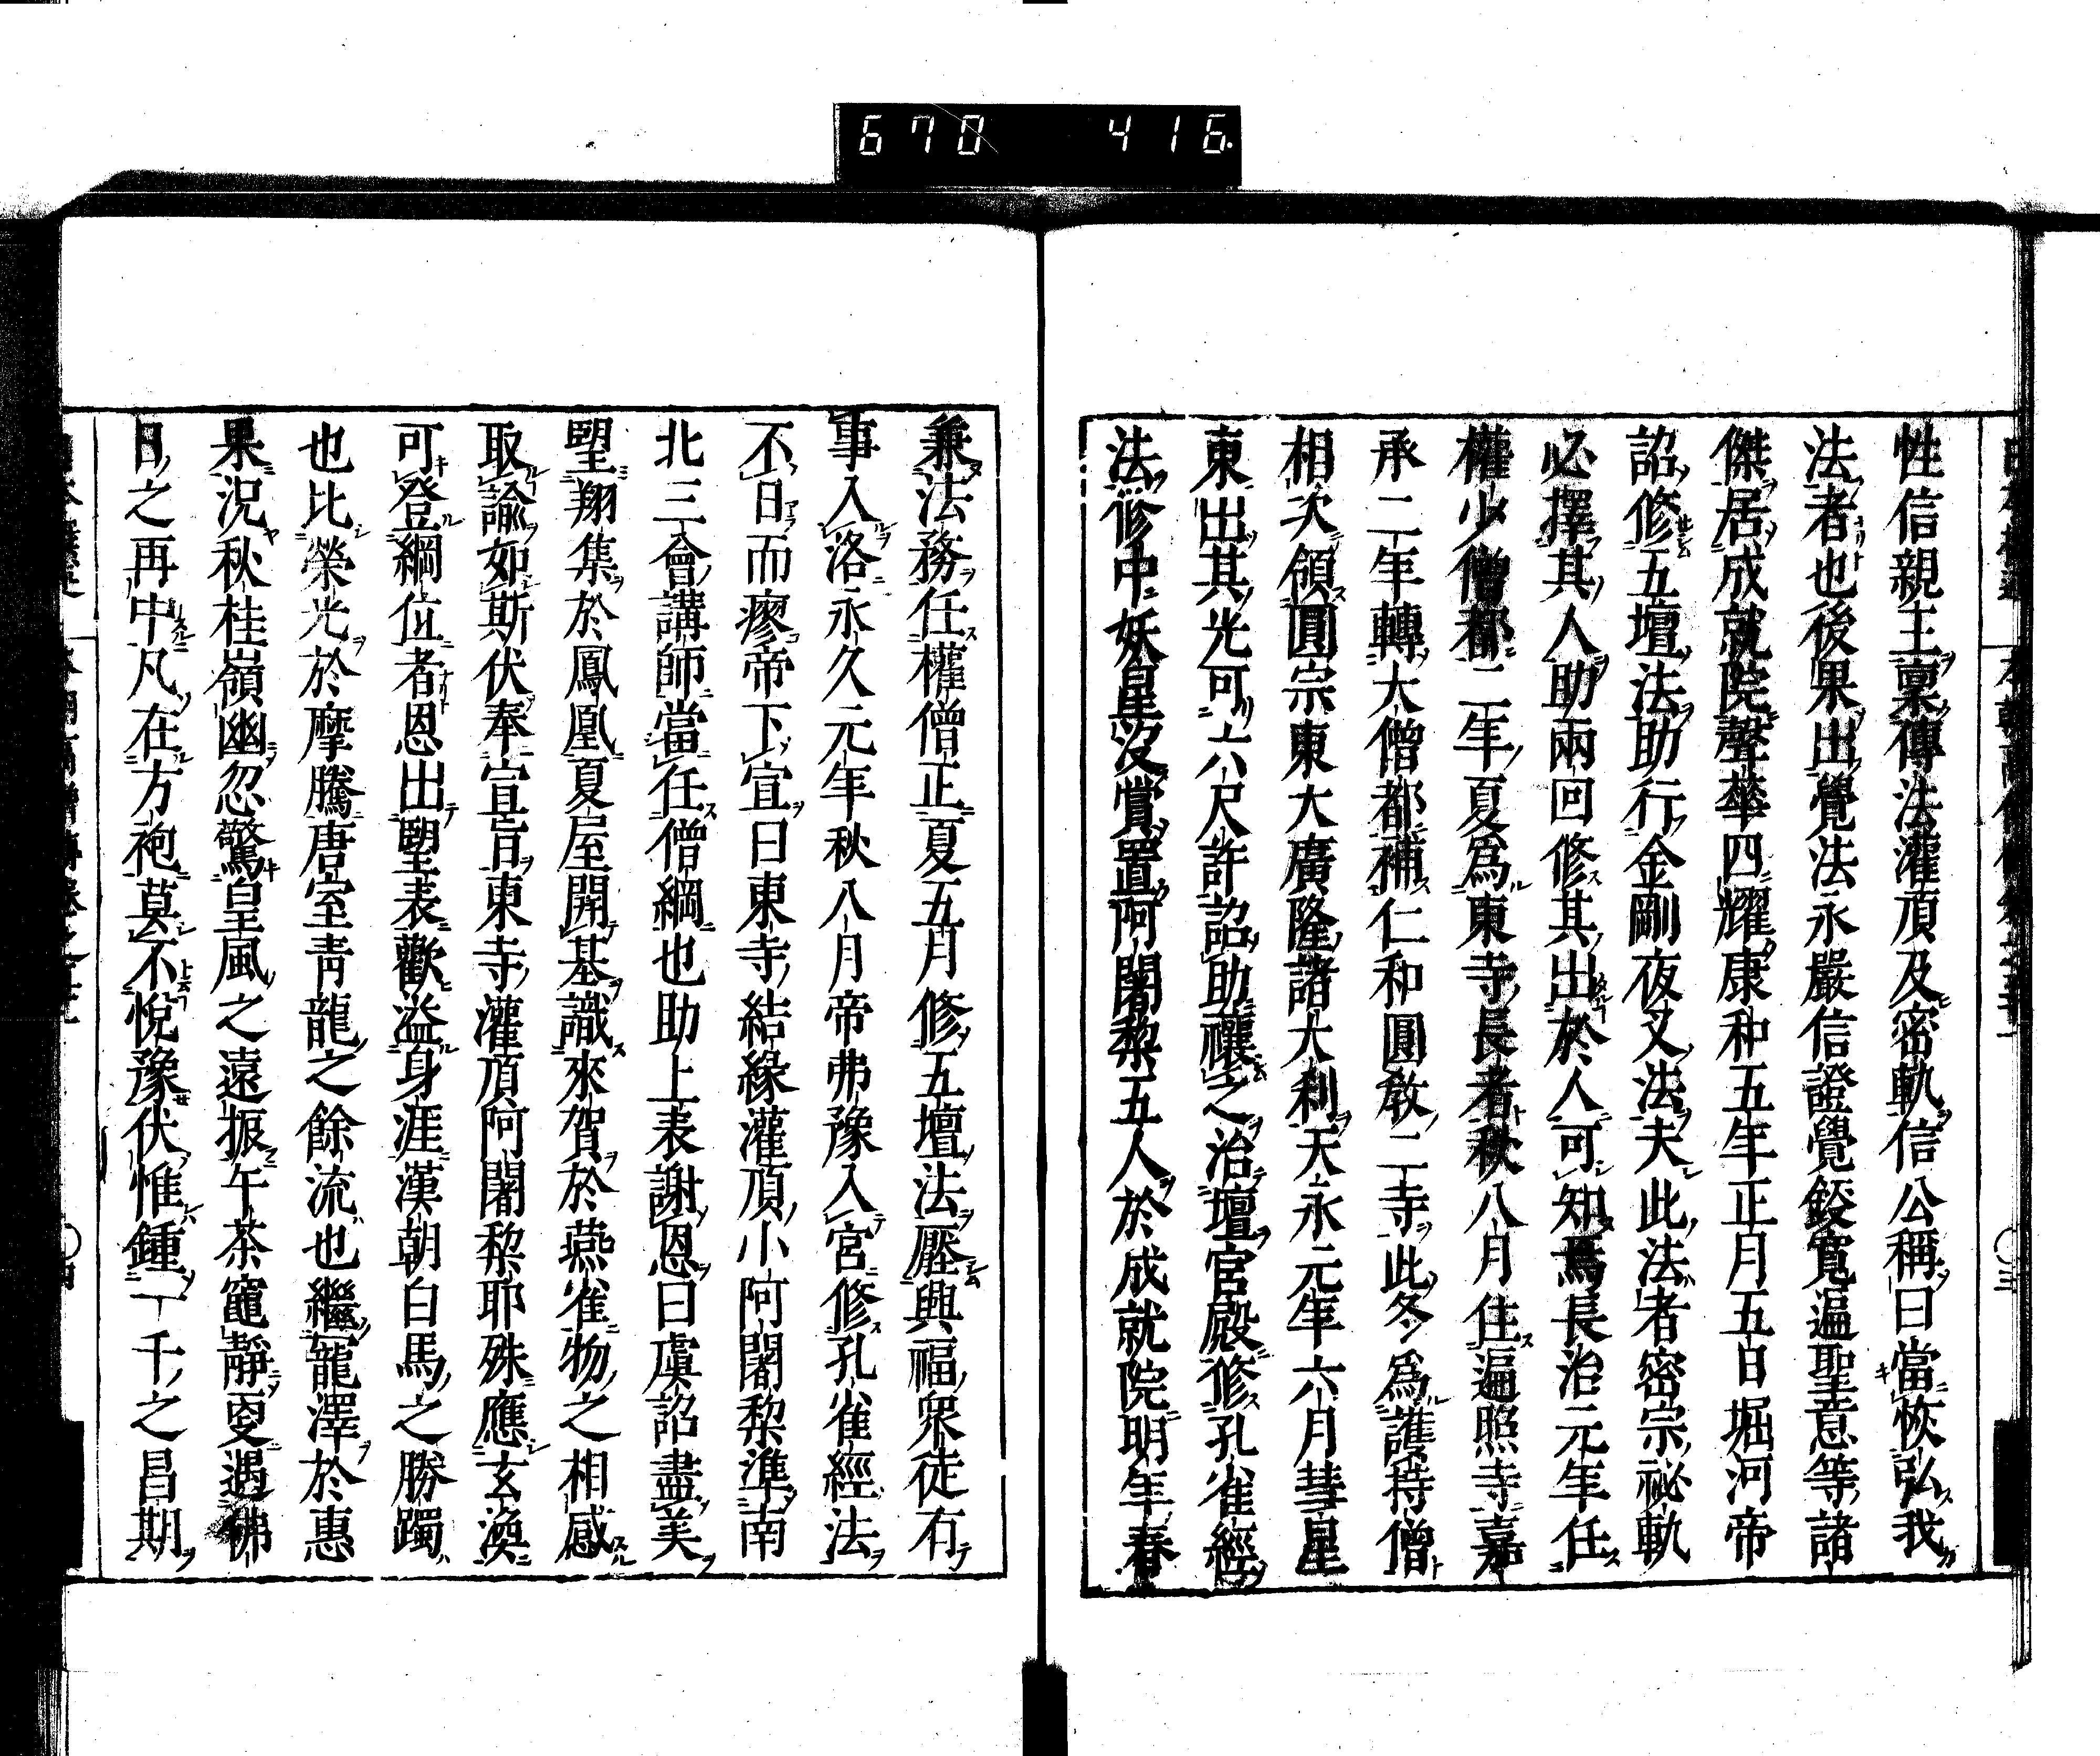 670 416
性信親王稟傳法灌頂及密軌信公稱曰當恢弘我
法者也後果出覺法永嚴信證覺鑁寬遍聖意等諸
傑居成就院聲華四耀康和五年正月五日堀河帝
詔修五壇法助行金剛夜叉法夫此法者密宗祕軌
必擇其人助兩回修其出於人可知焉長治元年任
權少僧都二年夏爲東寺長者秋八月住遍照寺嘉
承二年轉大僧都補仁和圓教二寺此冬爲護持僧
相次領圓宗東大廣隆諸大利天永元年六月彗星
東出其光可六尺許詔助禳之治壇宮殿修孔雀經
法修中妖星沒賞置阿闍梨五人於成就院明年春
兼法務任權僧正夏五月修五壇法壓興福衆徒右
事入洛永久元年秋八月帝弗豫入宮修孔雀經法
不日而瘳帝下宣曰東寺結緣灌頂小阿闍梨準南
北三會講師當任僧綱也助上表謝恩曰虞詔盡美
望翔集於鳳凰夏屋開基識來賀於燕雀物之相感
取諭如斯伏奉宣旨東寺灌頂阿闍梨耶殊應玄渙
可登綱位者恩出望表歡溢身涯漢朝白馬之勝躅
也比榮光於摩騰唐室青龍之餘流也繼寵澤於惠
果況秋桂嶺幽忽驚皇風之遠振午茶竈靜更遇佛
日之再中凡在方袍莫不悅豫伏惟鍾一千之昌期